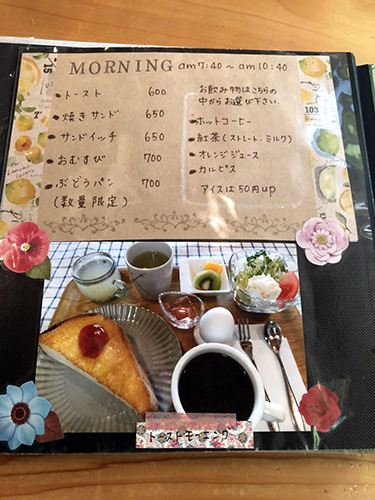 MORNING am 7:40 ~ am 10:40
・トースト 600
・焼きサンド 650
・サンドイッチ 650
・おむすび 700
・ぶどうパン 700
(数量限定)
お飲み物はこちらの
中からお選び下さい。
・ホットコーヒー
・紅茶(ストレート、ミルク)
・オレンジジュース
・カルピス
アイスは50円up
トーストモーニング